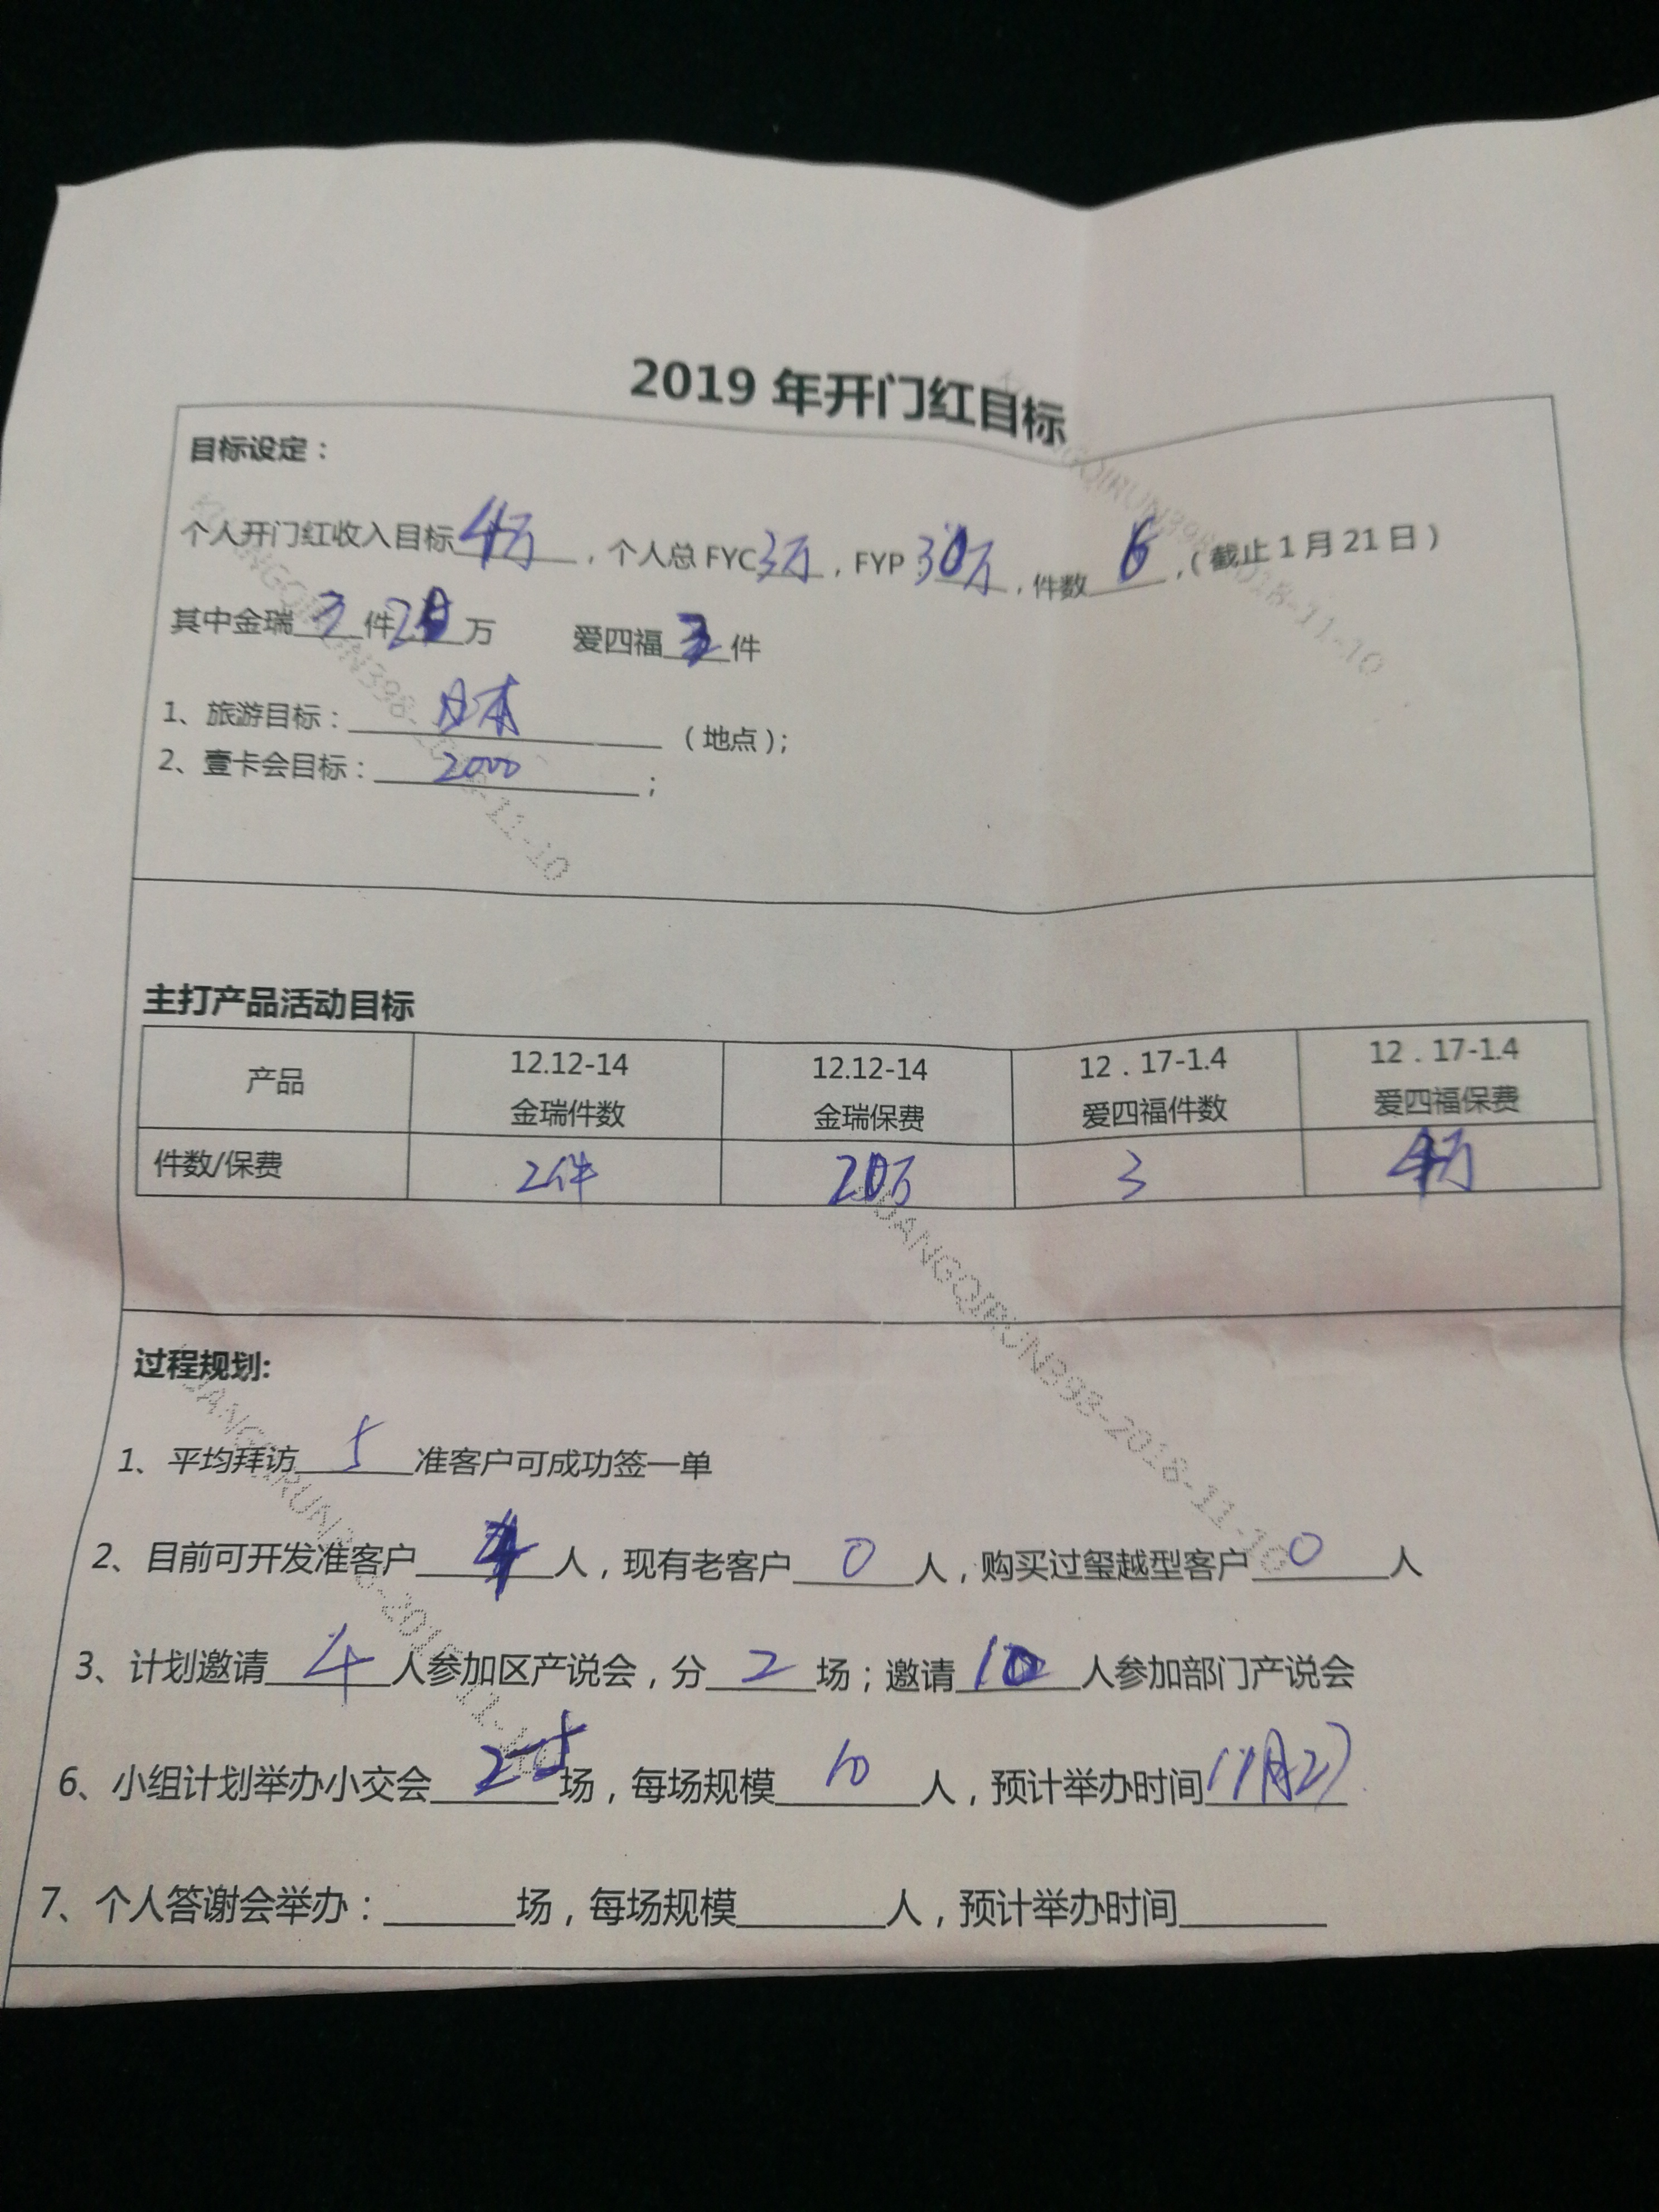 2019 年开门红目标
目标设定：
个人开门红收入目标4万，个人总 FYC3万，FYP 30万，件数6，（截止 1 月 21 日）
其中金瑞3件20万 爱四福3件
1、旅游目标：日本（地点）；
2、壹卡会目标：2000；
主打产品活动目标
产品 12.12-14 12.12-14 12．17-1.4 12．17-1.4
金瑞件数 金瑞保费 爱四福件数 爱四福保费
件数/保费 2件 20万 3 4万
过程规划:
1、平均拜访5准客户可成功签一单
2、目前可开发准客户人，现有老客户0人，购买过玺越型客户0人
3、计划邀请4人参加区产说会，分2场；邀请10人参加部门产说会
6、小组计划举办小交会场，每场规模10人，预计举办时间11月27
7、个人答谢会举办：场，每场规模人，预计举办时间
HUANGQIRUN398-2018-11-10
HUANGQIRUN398-2018-11-10
HUANGQIRUN398-2018-11-10
HUANGQIRUN398-2018-11-10